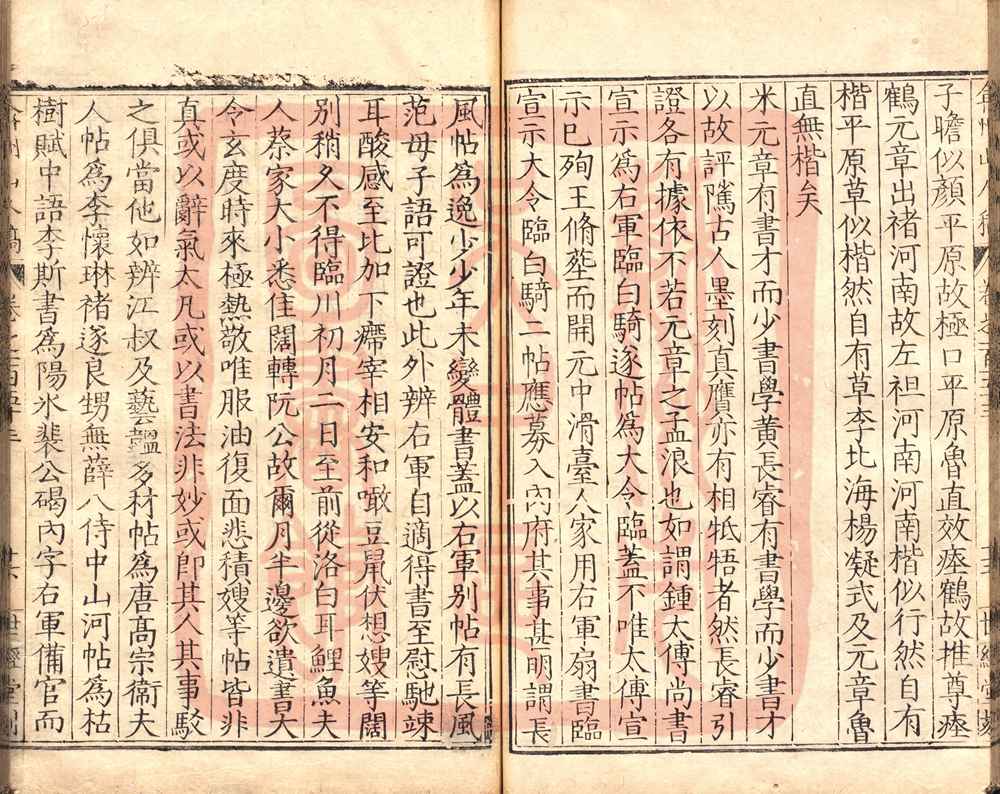 子瞻似顔平原故極口平原魯直效瘞鶴故推尊瘞
鶴元章出褚河南故左袒河南河南楷似行然自有
楷平原草似楷然自有草李北海楊凝式及元章魯
直無楷矣
米元章有書才而少書學黃長睿有書學而少書才
以故評隲古人墨刻真贋亦有相牴牾者然長睿引
證各有據依不若元章之孟浪也如謂鍾太傅尚書
宣示爲右軍臨白騎遂帖爲大令臨蓋不唯太傅宣
示已殉王脩塟而開元中滑臺人家用右軍扇書臨
宣示大令臨白騎二帖應募入內府其事甚明謂長
風帖爲逸少少年未變體書蓋以右軍別帖有長風
范母子語可證也此外辨右軍自適得書至慰馳竦
耳酸感至比加下癤宰相安和噉豆鼠伏想嫂等闊
別稍久不得臨川初月二日至前從洛白耳鯉魚夫
人蔡家大小悉佳闊轉阮公故爾月半邊欲遺書大
令玄度時來極熱敬唯服油復面悲積嫂等帖皆非
真或以辭氣太凡或以書法非妙或卽其人其事駁
之俱當他如辨江叔及藝韞多材帖爲唐高宗衞夫
人帖爲李懷琳褚遂良甥無薛八侍中山河帖爲枯
樹賦中語李斯書爲陽氷裴公碣內字右軍備官而
卷之一百五十三
世經堂刻